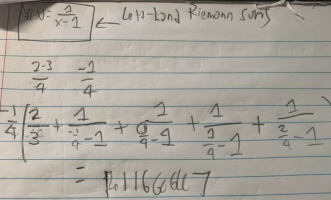 f(x) = 1/(x-1) ← Left-hand Riemann sums
(2-3)/4 -1/4
-1/4 ( 2/-3 + 1/(-1/4 - 1) + 1/(0/4 - 1) + 1/(1/4 - 1) + 1/(2/4 - 1) )
=